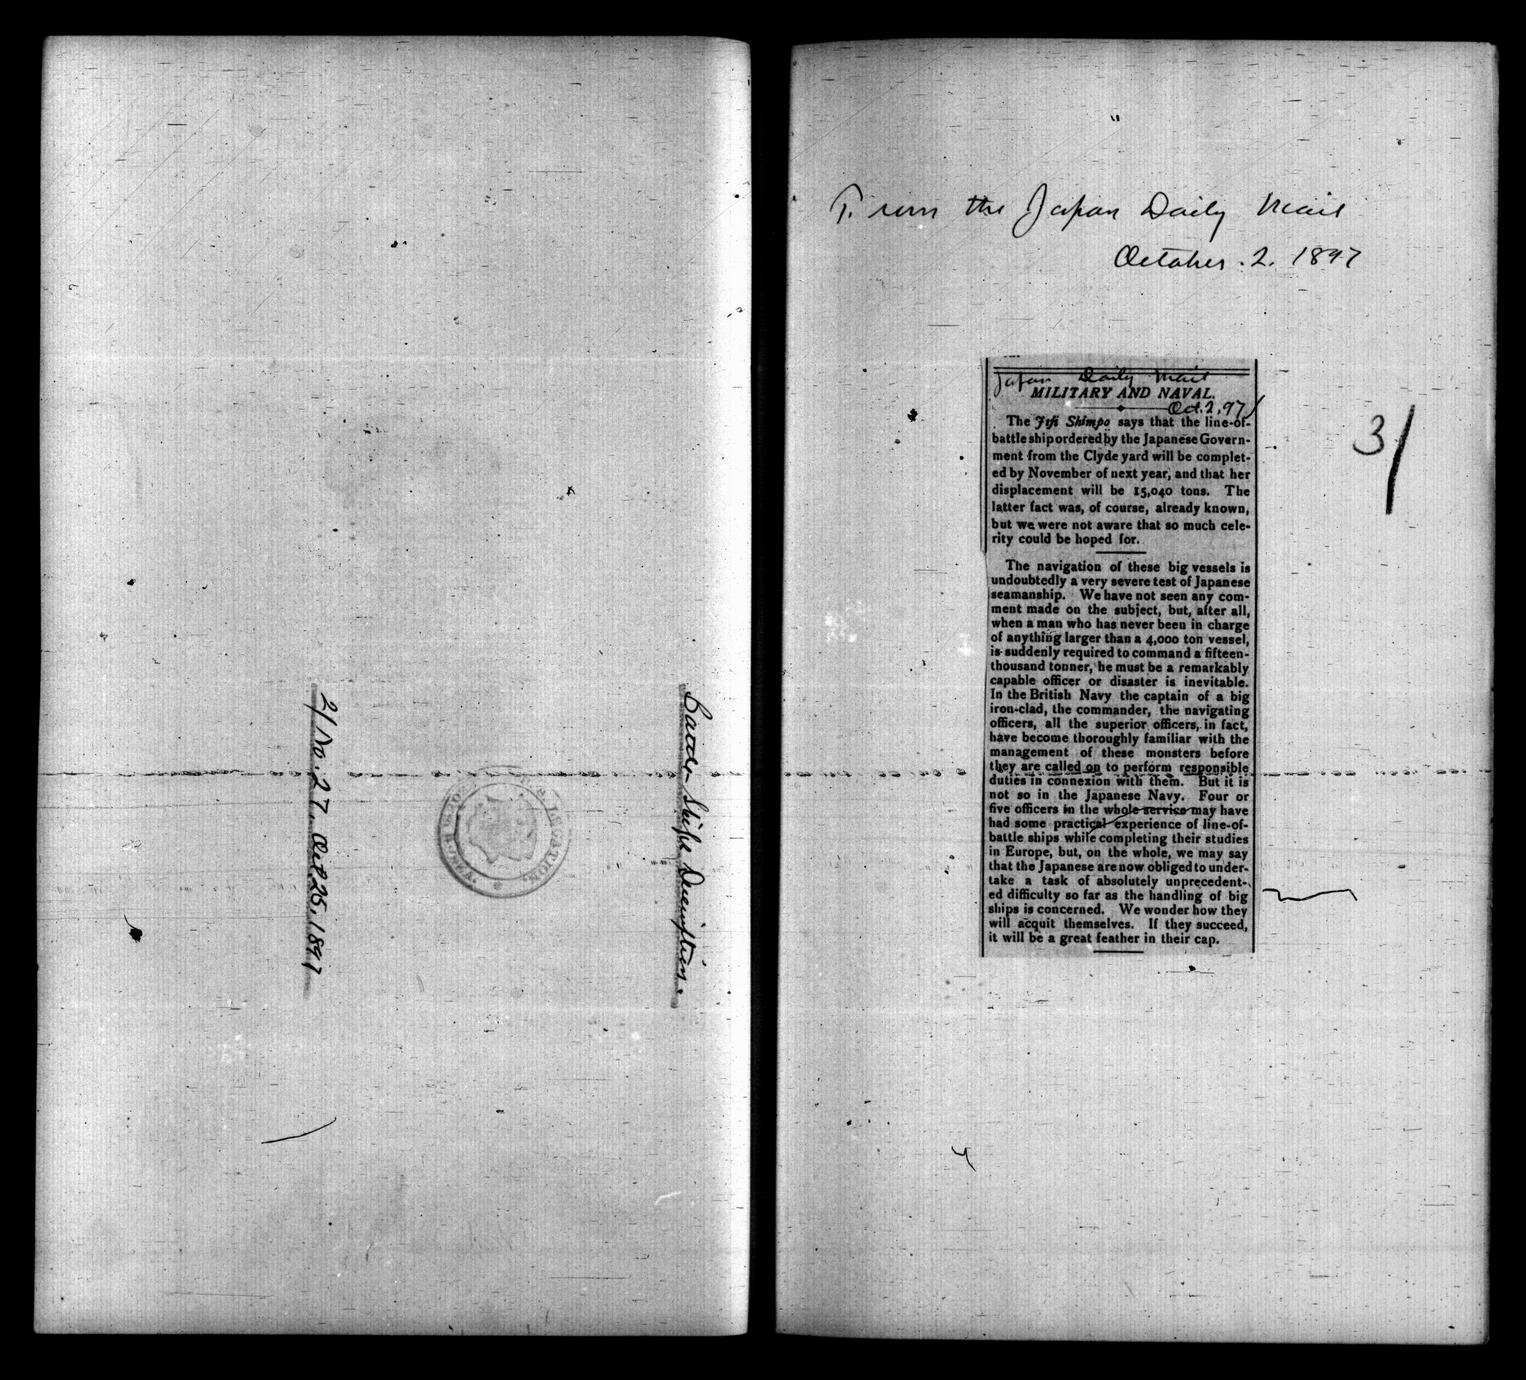 Battle Ships Description.
2/No. 27. Oct 25, 1897
From the Japan Daily Mail
October. 2. 1897
3/
Japan Daily Mail
MILITARY AND NAVAL.
Oct. 2, 97
The Jiji Shimpo says that the line-of-
battle ship ordered by the Japanese Govern-
ment from the Clyde yard will be complet-
ed by November of next year, and that her
displacement will be 15,040 tons. The
latter fact was, of course, already known,
but we were not aware that so much cele-
rity could be hoped for.
The navigation of these big vessels is
undoubtedly a very severe test of Japanese
seamanship. We have not seen any com-
ment made on the subject, but, after all,
when a man who has never been in charge
of anything larger than a 4,000 ton vessel,
is suddenly required to command a fifteen-
thousand tonner, he must be a remarkably
capable officer or disaster is inevitable.
In the British Navy the captain of a big
iron-clad, the commander, the navigating
officers, all the superior officers, in fact,
have become thoroughly familiar with the
management of these monsters before
they are called on to perform responsible
duties in connexion with them. But it is
not so in the Japanese Navy. Four or
five officers in the whole service may have
had some practical experience of line-of-
battle ships while completing their studies
in Europe, but, on the whole, we may say
that the Japanese are now obliged to under-
take a task of absolutely unprecedent-
ed difficulty so far as the handling of big
ships is concerned. We wonder how they
will acquit themselves. If they succeed,
it will be a great feather in their cap.